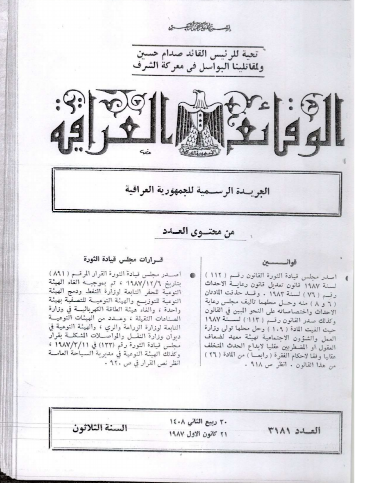 بسم الله الرحمن الرحيم
تحية للرئيس القائد صدام حسين
ولمقاتلينا البواسل في معركة الشرف
الوقائع العراقية
الجريدة الرسمية للجمهورية العراقية
من محتوى العدد
قوانين
اصدر مجلس قيادة الثورة القانون رقم (١١٢)
لسنة ١٩٨٧ قانون تعديل قانون رعاية الاحداث
رقم (٧٦) لسنة ١٩٨٣ . وقد حذفت المادتان
(٦ و ٨) منه وحل محلهما تأليف مجلس رعاية
الاحداث واختصاصاته على النحو المبين في القانون
وكذلك صدر القانون رقم (١١٣) لسنة ١٩٨٧
حيث الغيت المادة (١٠٩) وحل محلها تولي وزارة
العمل والشؤون الاجتماعية تهيئة معهد لضعاف
العقول او المضطربين عقليا لايداع الحدث المتخلف
عقليا وفقا لاحكام الفقرة (رابعا) من المادة (٢٦)
من هذا القانون . انظر ص ٩١٨
قرارات مجلس قيادة الثورة
اصدر مجلس قيادة الثورة القرار المرقم (٨٩٦)
بتاريخ ١٩٨٧/١٢/٦ تم بموجبه الغاء الهيئة
التوعية للحفر التابعة لوزارة النفط ودمج الهيئة
التوعية للتوزيع والهيئة التوعية للتصفية بهيئة
واحدة ، والغاء هيئة الطاقة الكهربائية في وزارة
الصناعات الثقيلة ، وعدد من الهيئات التوعية
التابعة لوزارة الزراعة والري ، والهيئة التوعية في
ديوان وزارة النقل والمواصلات المشكلة بقرار
مجلس قيادة الثورة رقم (١٢٣) في ١٩٨٧/٣/١١
وكذلك الهيئة التوعية في مديرية السياحة العامة
انظر نص القرار في ص ٩٢٠
العدد ٣١٨١
٣٠ ربيع الثاني ١٤٠٨
٢١ كانون الاول ١٩٨٧
السنة الثلاثون